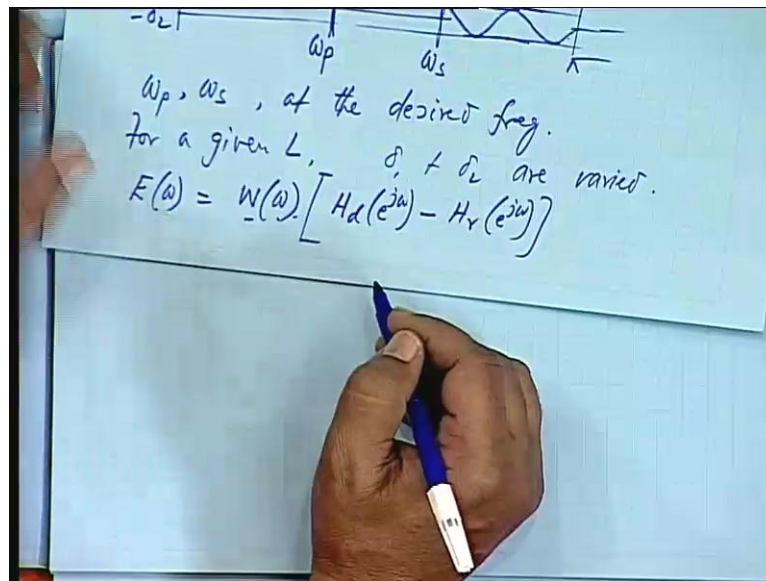 -δ₂
ωp ωs π
ωp, ωs, at the desired freq.
For a given L, δ₁ + δ₂ are varied.
E(ω) = W(ω). [Hd(e^jω) - Hr(e^jω)]